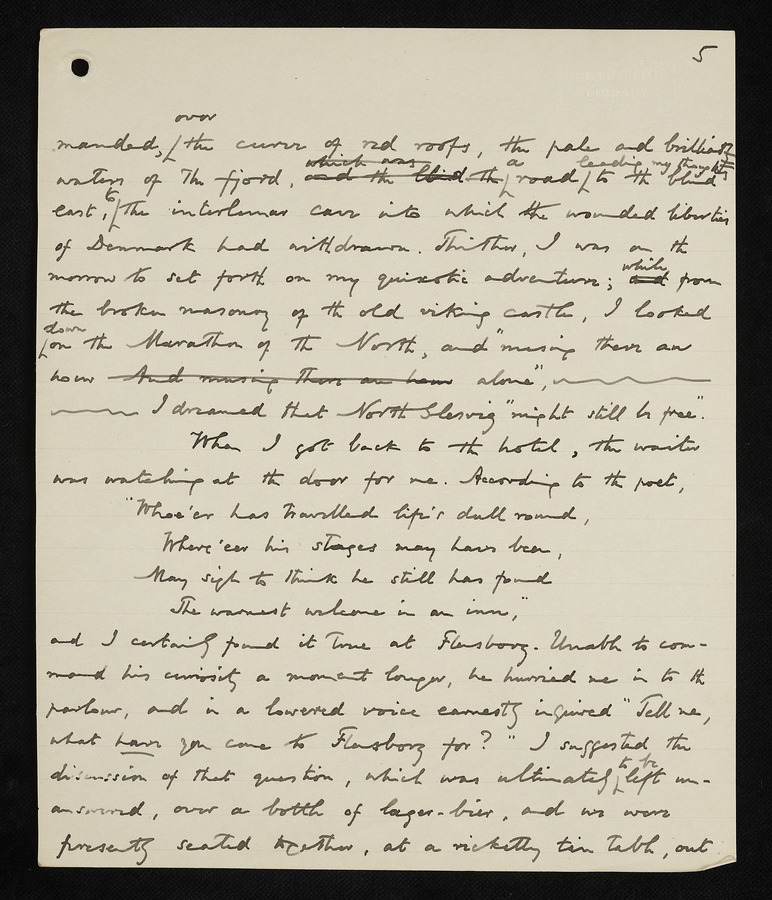 5
over
manded, the curve of red roofs, the pale and brilliant
which was a leading my thoughts
waters of the fjord, and the blind the road to the blind
to
east, the interlunar cave into which the wounded liberties
of Denmark had withdrawn. Thither, I was on the
morrow to set forth on my quixotic adventure; and from
while
the broken masonry of the old viking castle, I looked
down
on the Marathon of the North, and "musing there an
hour And musing there an hour alone",
I dreamed that North Slesvig "might still be free".
When I got back to the hotel, the waiter
was watching at the door for me. According to the poet,
"Whoe'er has travelled life's dull round,
Where'eer his stages may have been,
May sigh to think he still has found
The warmest welcome in an inn",
and I certainly found it true at Flensborg. Unable to com-
mand his curiosity a moment longer, he hurried me in to the
parlour, and in a lowered voice earnestly inquired "Tell me,
what have you come to Flensborg for?" I suggested the
to be
discussion of that question, which was ultimately left un-
answered, over a bottle of lager-bier, and we were
presently seated together, at a ricketty tin table, out